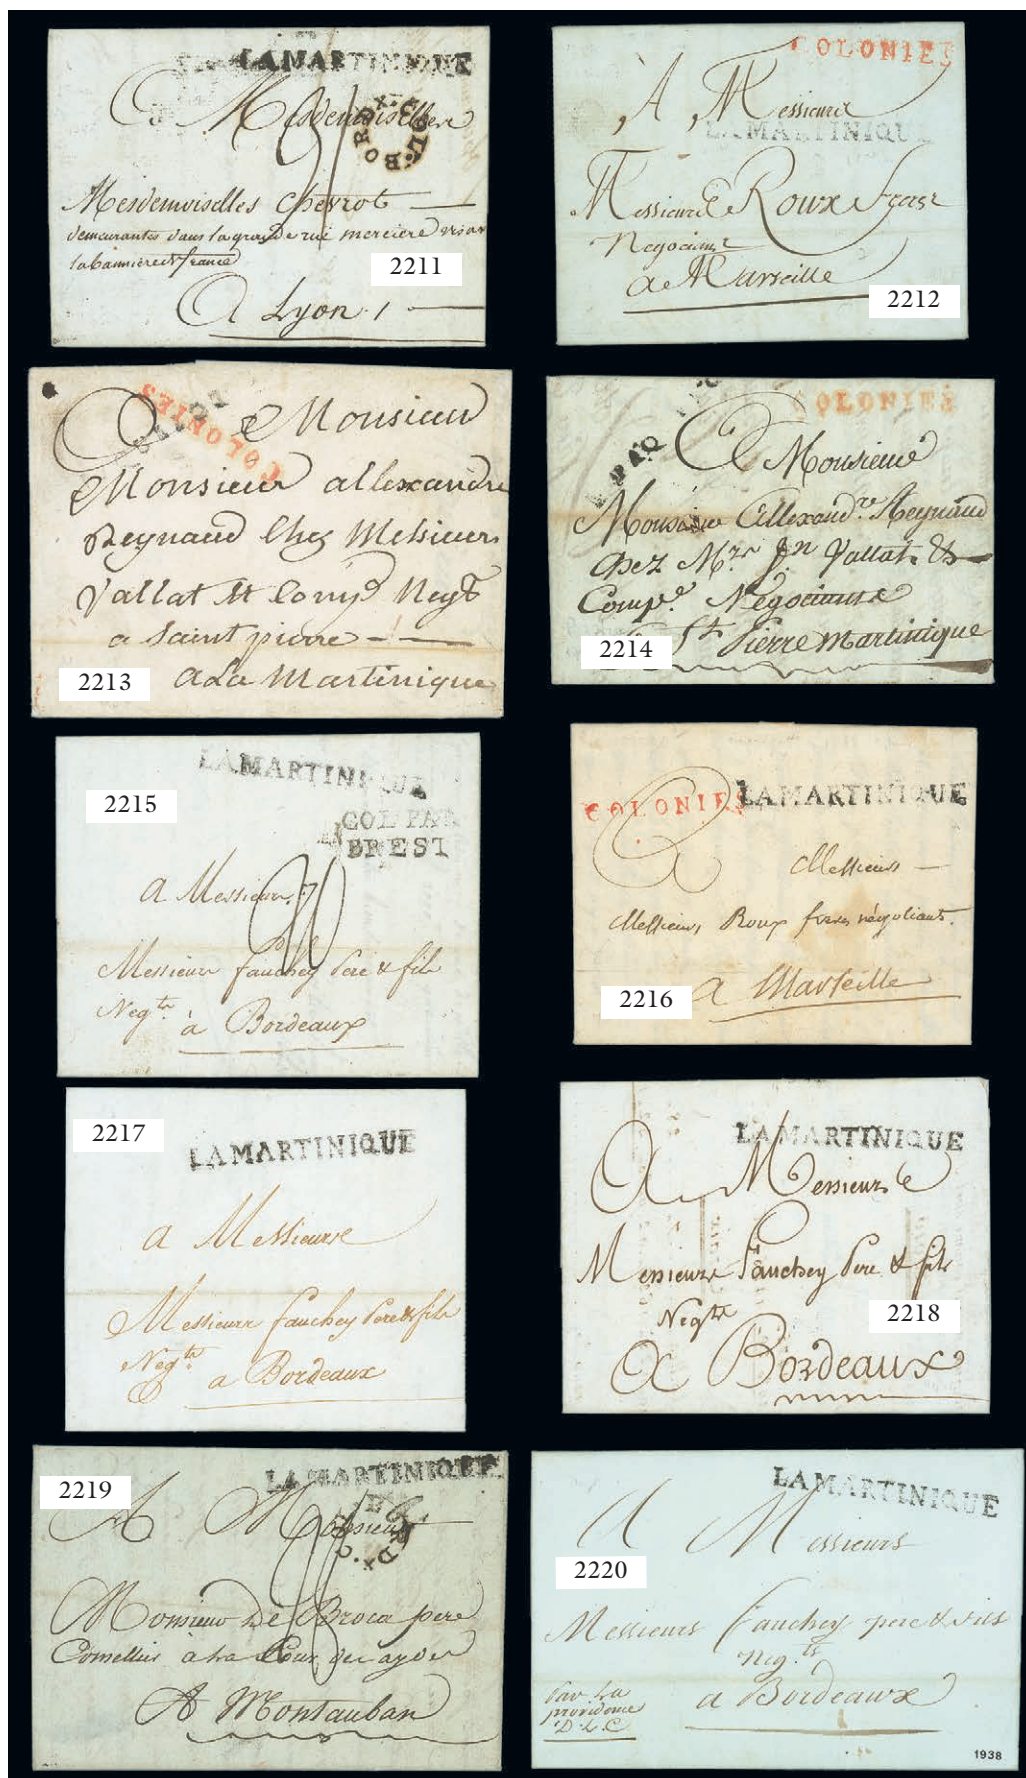 LA MARTINIQUE
Mesdemoiselles
COL. BORDX.
Mesdemoiselles Chevrot
demeurantes dans la grande rue merciere
2211
A Lyon
COLONIES
A Messieurs
LA MARTINIQU
Messieurs Roux Freres
Negociants
a Marseille
2212
COLONIES
Monsieur
Monsieur allexandre
Reynaud Chez Messieurs
Vallat et Comp Negt
a Saint pierre
2213
a La Martinique
COLONIES
PAQ
A Monsieur
Monsieur Allexandre Reynaud
Chez Mrs Jn Vallat &
Compe Négociants
2214
St Pierre Martinique
LA MARTINIQUE
2215
COL PAR
BREST
a Messieurs
Messieurs fauchey Pere & fils
Negts
à Bordeaux
COLONIES
LA MARTINIQUE
A Messieurs
Messieurs Roux freres négotiants.
2216
a Marseille
2217
LA MARTINIQUE
a Messieurs
Messieurs fauchey Pere & fils
Negts
a Bordeaux
LA MARTINIQUE
A Messieurs
Messieurs Fauchey Pere & fils
2218
Negts
A Bordeaux
LA MARTINIQUE
2219
A Monsieur
Monsieur De Broca pere
Conseiller à La Cour des aydes
A Montauban
LA MARTINIQUE
A Messieurs
2220
Messieurs fauchey pere & fils
Negts
a Bordeaux
Par La
providence
D. L. C
1938